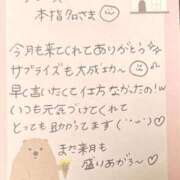 本指名さま
今月も来てくれてありがとう
サプライズも大成功〜
早く言いたくて仕方なかったの!!
いつも元気づけてくれて
とっても助かってます(˙˘˙)♡
また来月も
盛りあがろ〜♡